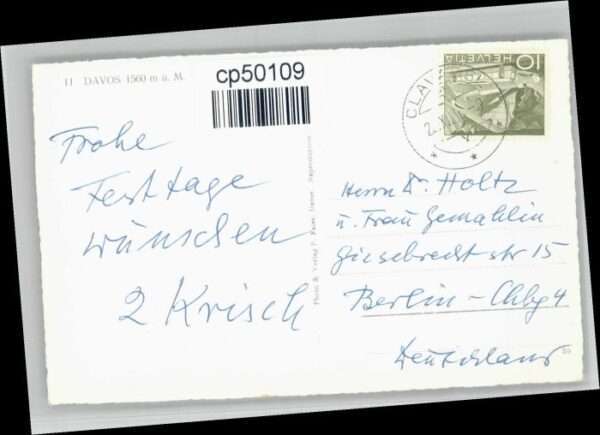 11 DAVOS 1560 m ü. M.
cp50109
Frohe
Festtage
wünschen
2 Krisch
Photo & Verlag
HELVETIA
10
CLA
2.
Herrn Dr. Holtz
u. Frau Gemahlin
Giesebrechtstr 15
Berlin-Chbg 4
Deutschland